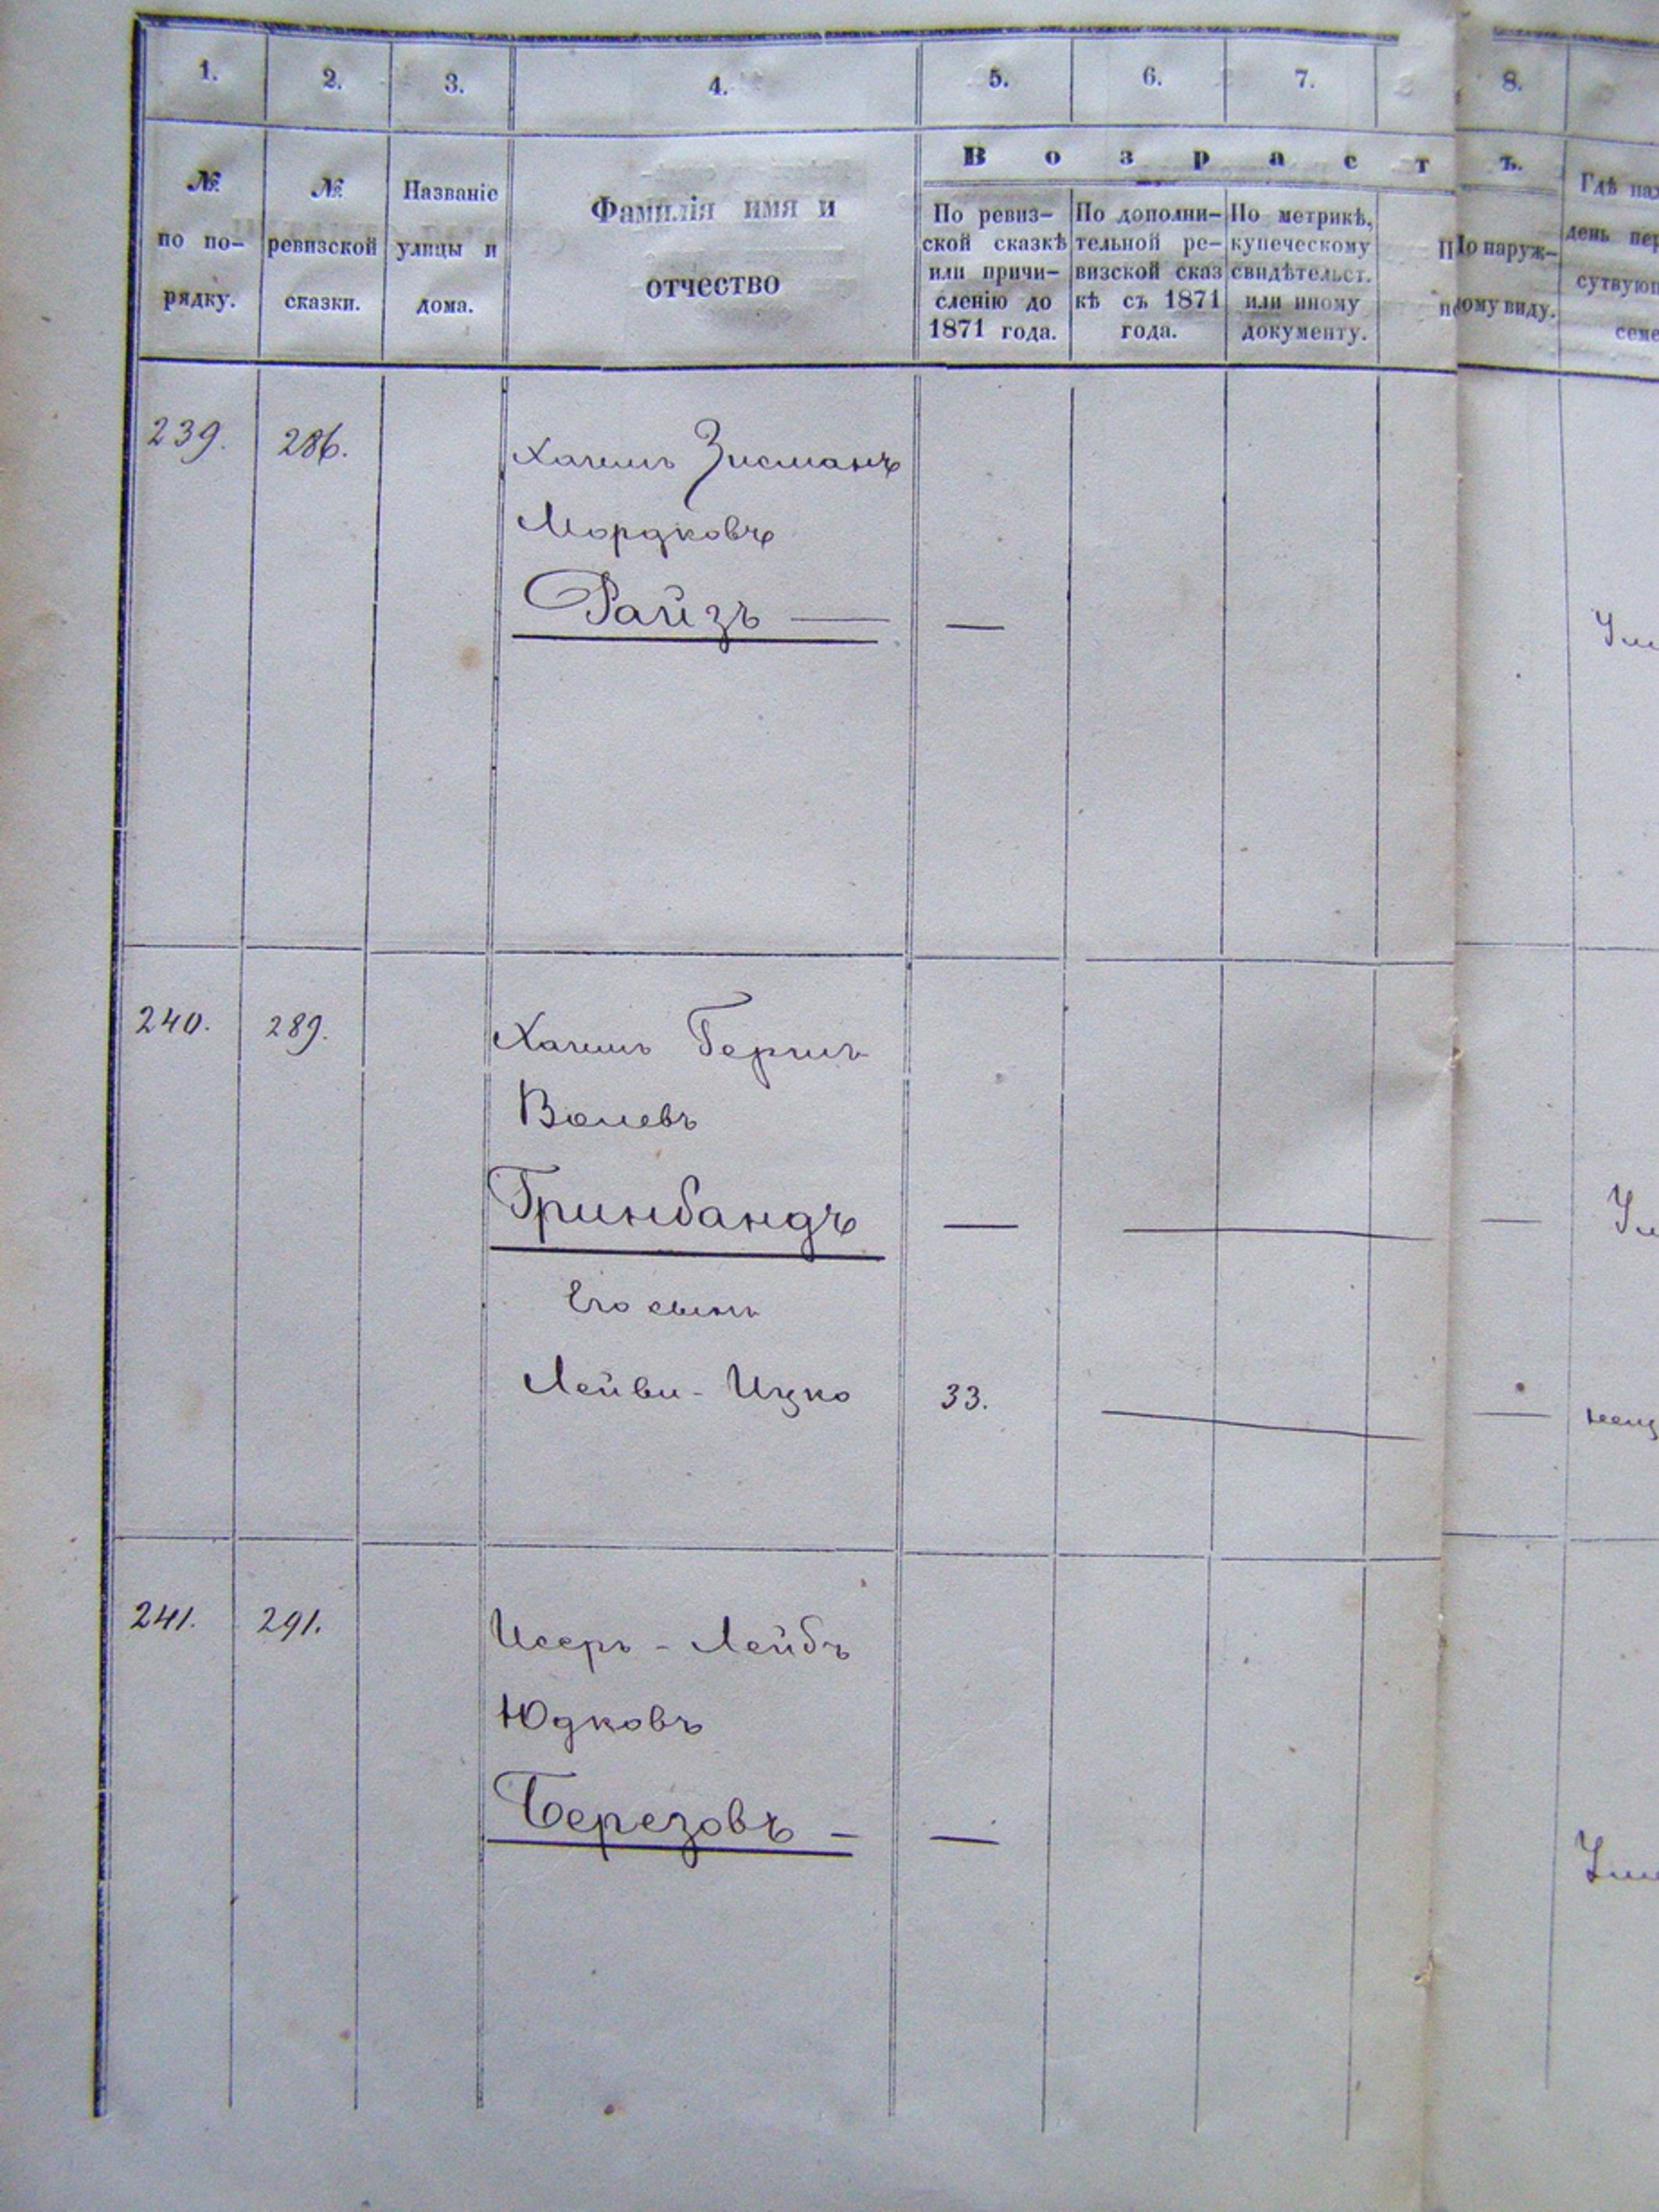 1. 2. 3. 4. 5. 6. 7. 8.
В о з р а с т ъ.
№ по по- рядку.
№ ревизской сказки.
Названіе улицы и дома.
Фамилія имя и
отчество
По ревиз-
ской сказкѣ
или причи-
сленію до
1871 года.
По дополни-
тельной ре-
визской сказ
кѣ съ 1871
года.
По метрикѣ,
купеческому
свидѣтельст.
или иному
документу.
По наруж-
ному виду.
Гдѣ
день
239. 286. Хаимъ Зисманъ
Мордковъ
Райзъ — —
240. 289. Хаимъ Гершъ
Волевъ
Гринбандъ — — —
Его сынъ
Лейви - Ицко 33. — —
241. 291. Исеръ - Лейбъ
Юдковъ
Березовъ — —